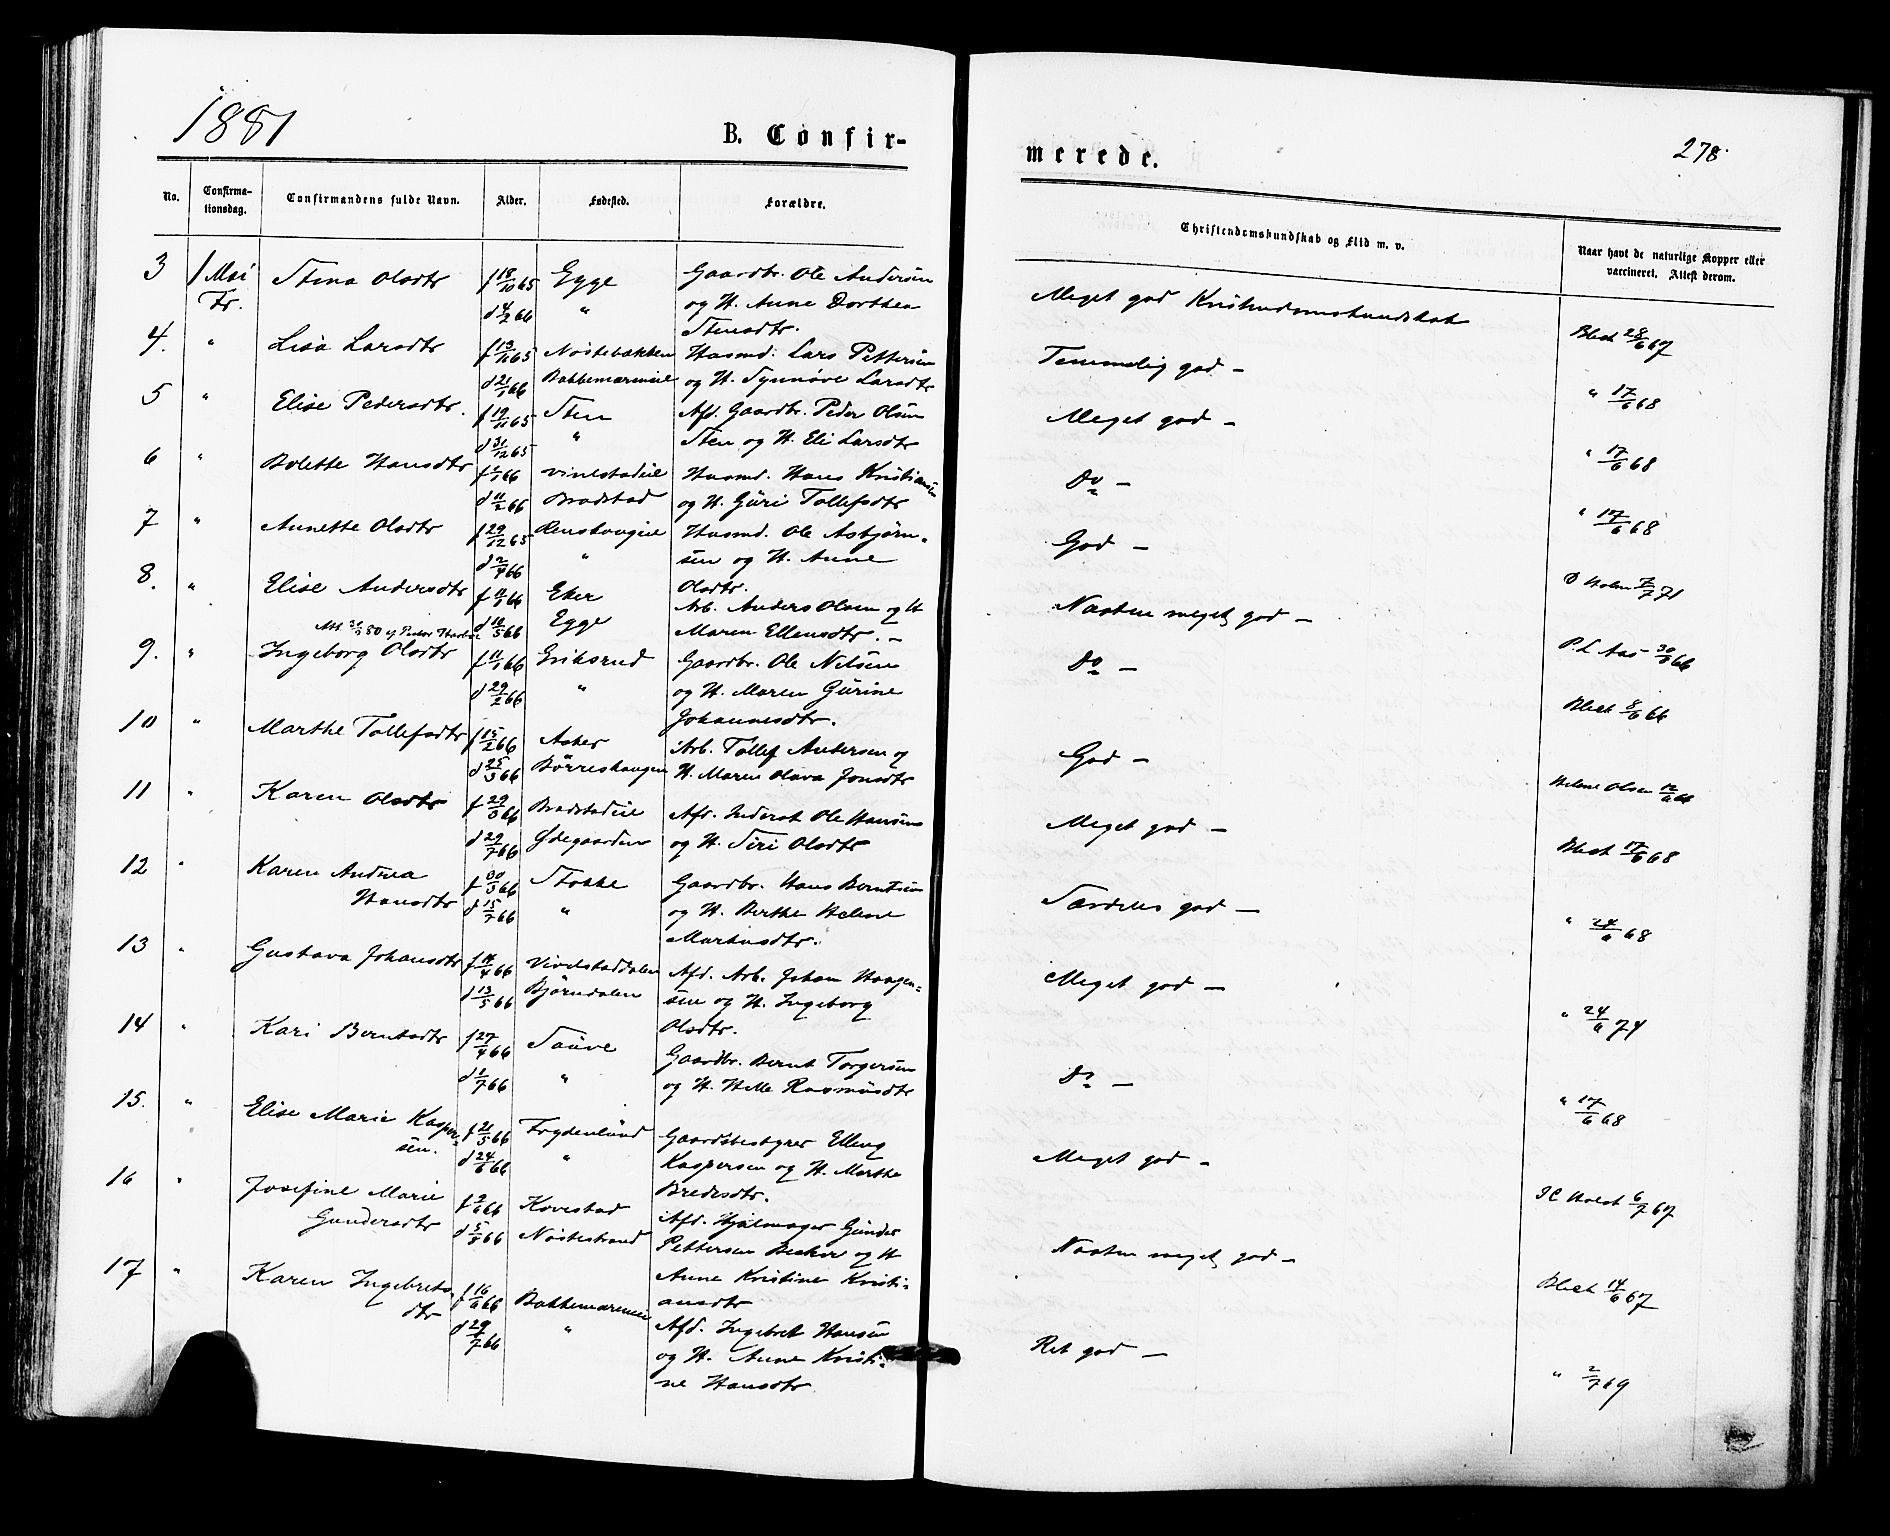 1881
B. Confir-
No.
Confirma-
tionsdag.
Confirmandens fulde Navn.
Alder.
Fødested.
Forældre.
3 1 Mai Stina Olsdtr f 18/10 65 Egge Gaardbr. Ole Andersen
Tr. d 4/2 66 " og H. Anne Dorthea
Stensdtr.
4. " Lisa Larsdtr f 13/11 65 Nøstebakken Husmd. Lars Pettersen
d 21/1 66 og H. Synnøve Larsdtr
5 " Elise Pedersdtr. f 19/11 65 Sten Afd. Gaardbr. Peder Olsen
d 31/12 65 " Sten og H. Eli Larsdtr
6 " Bolette Hansdtr 66 Husmd. Hans Kristiansen
d 11/2 66 Bradstad og H. Guri Tollefsdtr
7 " Annette Olsdtr f 29/12 65 Husmd. Ole Asbjørn-
d 2/4 66 " sen og H. Anne
Olsdtr.
8. " Elise Andersdtr f 11/1 66 Eker Arb. Anders Olsen og H
d 10/5 66 Egge Maren Ellensdtr. –
9. " Ingeborg Olsdtr f 11/1 66 Eriksrud Gaardbr. Ole Nelsen
d 29/2 66 " og H. Maren Gurine
Johannesdtr.
10 " Marthe Tollefsdtr f 15/2 66 Asker Arb. Tollef Andersen og
d 25/3 66 Børreshaugen H. Maren Olava Jonsdtr
11 " Karen Olsdtr f 29/3 66 Bradstadeie Afd. Inderst Ole Hansen
d 29/7 66 Ødegaarden og H. Siri Olsdtr
12 " Karen Andrea f 30/3 66 Stokke Gaardbr. Hans Berntsen
Hansdtr d 15/7 66 " og H. Berthe Helene
Markusdtr.
13 " Gustava Johansdtr f 14/4 66 Vivelstaddalen Afd. Arb. Johan Haagen-
d 13/5 66 Bjørndalen sen og H. Ingeborg
Olsdtr.
14 " Kari Berntsdtr f 27/4 66 Sauve Gaardbr. Bernt Torgersen
d 1/7 66 " og H. Helle Rasmusdtr
15. " Elise Marie Kasper- f 21/5 66 Frydenlund Gaardsbestyrer Elling
sen. d 24/6 66 " Kaspersen og H. Marthe
Bredesdtr.
16 " Josefine Marie f 2/6 66 Kovestad Afd. Hjulmager Gunder
Gundersdtr d 5/8 66 Nøstestrand Pettersen Becker og H
Anne Kristine Kristi-
ansdtr
17 " Karen Ingebrets f 16/6 66 Afd. Ingebret Hansen
dtr d 29/7 66 " og H. Anne Kristi-
ne Hansdtr
merede.
278.
Christendomskundskab og Flid m. v.
Naar havt de naturlige Kopper eller
vaccineret. Attest derom.
Meget god Kristendomskundskab Blect 28/6 67
Temmelig god – " 17/6 68
Meget god – " 17/6 68
Do – " 17/6 68
God – O Holm 7/7 71
Næsten meget god – P.L Aas 30/8 66
Do – Blect 8/6 66
God – Helene Olsen 12/6 66
Meget god – Blect 17/6 68
Særdeles god – " 24/6 68
Meget god – " 24/6 74
Do – " 17/6 68
Meget god – I C Holst 6/7 67
Næsten meget god – Blect 14/6 67
Ret god – " 2/7 69